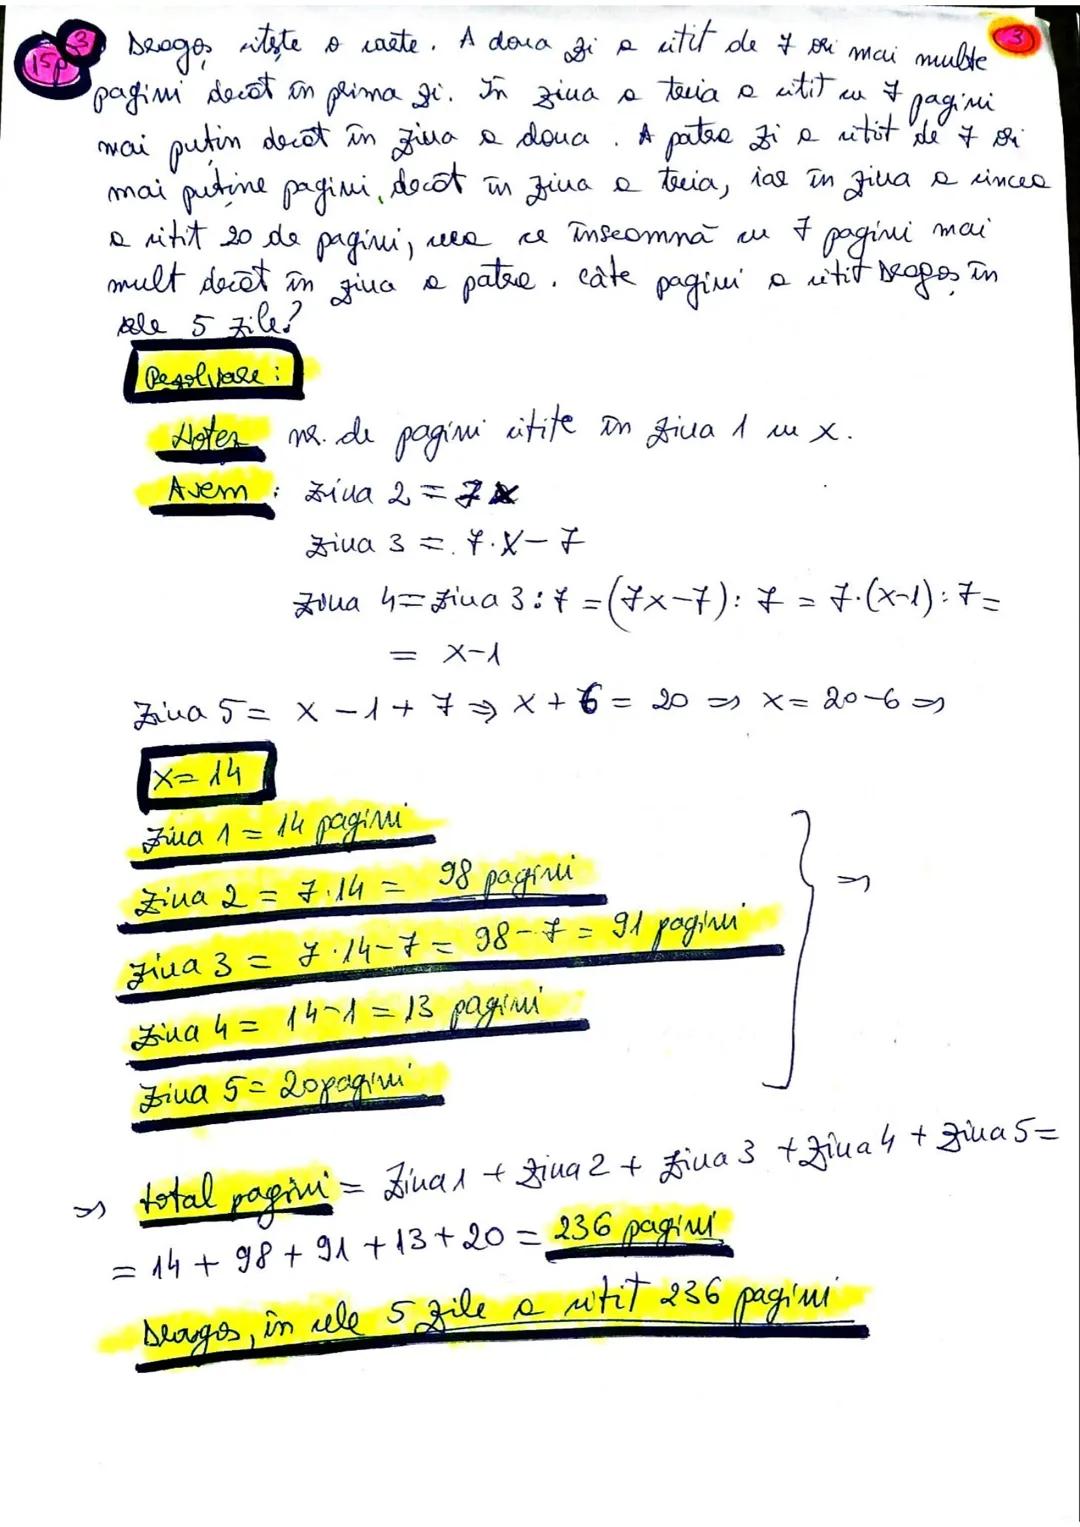 3
15p
3
Dragoș citește o carte. A doua zi a citit de 7 ori mai multe
pagini decât în prima zi. În ziua a treia a citit cu 7 pagini
mai puțin decât în ziua a doua. A patra zi a citit de 7 ori
mai puține pagini, decât în ziua a treia, iar în ziua a cincea
a citit 20 de pagini, ceea ce înseamnă cu 7 pagini mai
mult decât în ziua a patra. Câte pagini a citit Dragoș în
cele 5 zile?
Rezolvare:
Notez nr. de pagini citite în ziua 1 cu x.
Avem: Ziua 2 = 7x
Ziua 3 = 7·x-7
Ziua 4 = Ziua 3:7 = (7x-7):7 = 7·(x-1):7=
= x-1
Ziua 5 = x-1+7 ⇒ x+6 = 20 ⇒ x = 20-6 ⇒
x = 14
Ziua 1 = 14 pagini
Ziua 2 = 7·14 = 98 pagini
Ziua 3 = 7·14-7 = 98-7 = 91 pagini
Ziua 4 = 14-1 = 13 pagini
Ziua 5 = 20 pagini
⇒
⇒ total pagini = Ziua 1 + Ziua 2 + Ziua 3 + Ziua 4 + Ziua 5 =
= 14 + 98 + 91 + 13 + 20 = 236 pagini
Dragoș, în cele 5 zile a citit 236 pagini